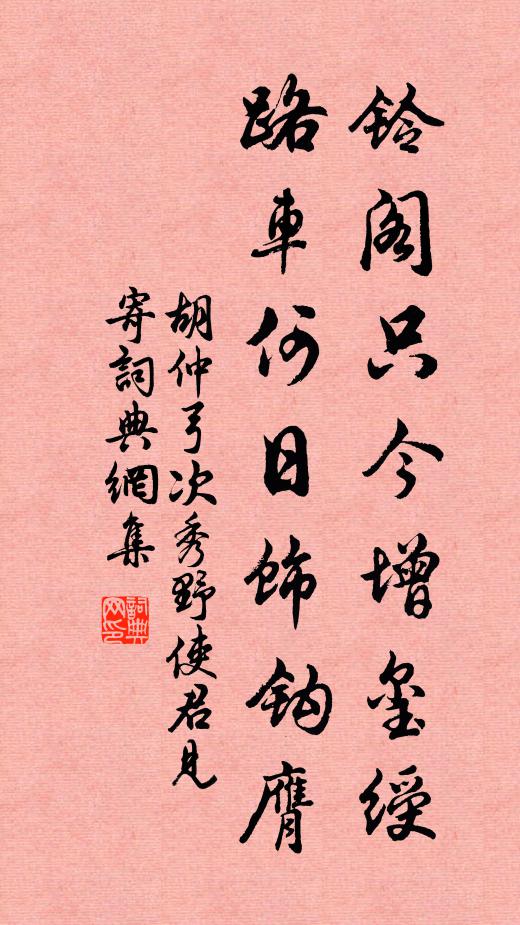 鈴阁只今增玺綬
路車何日飾鈎膺
胡仲弓次秀野使君見
寄詞典網集
詞典网印